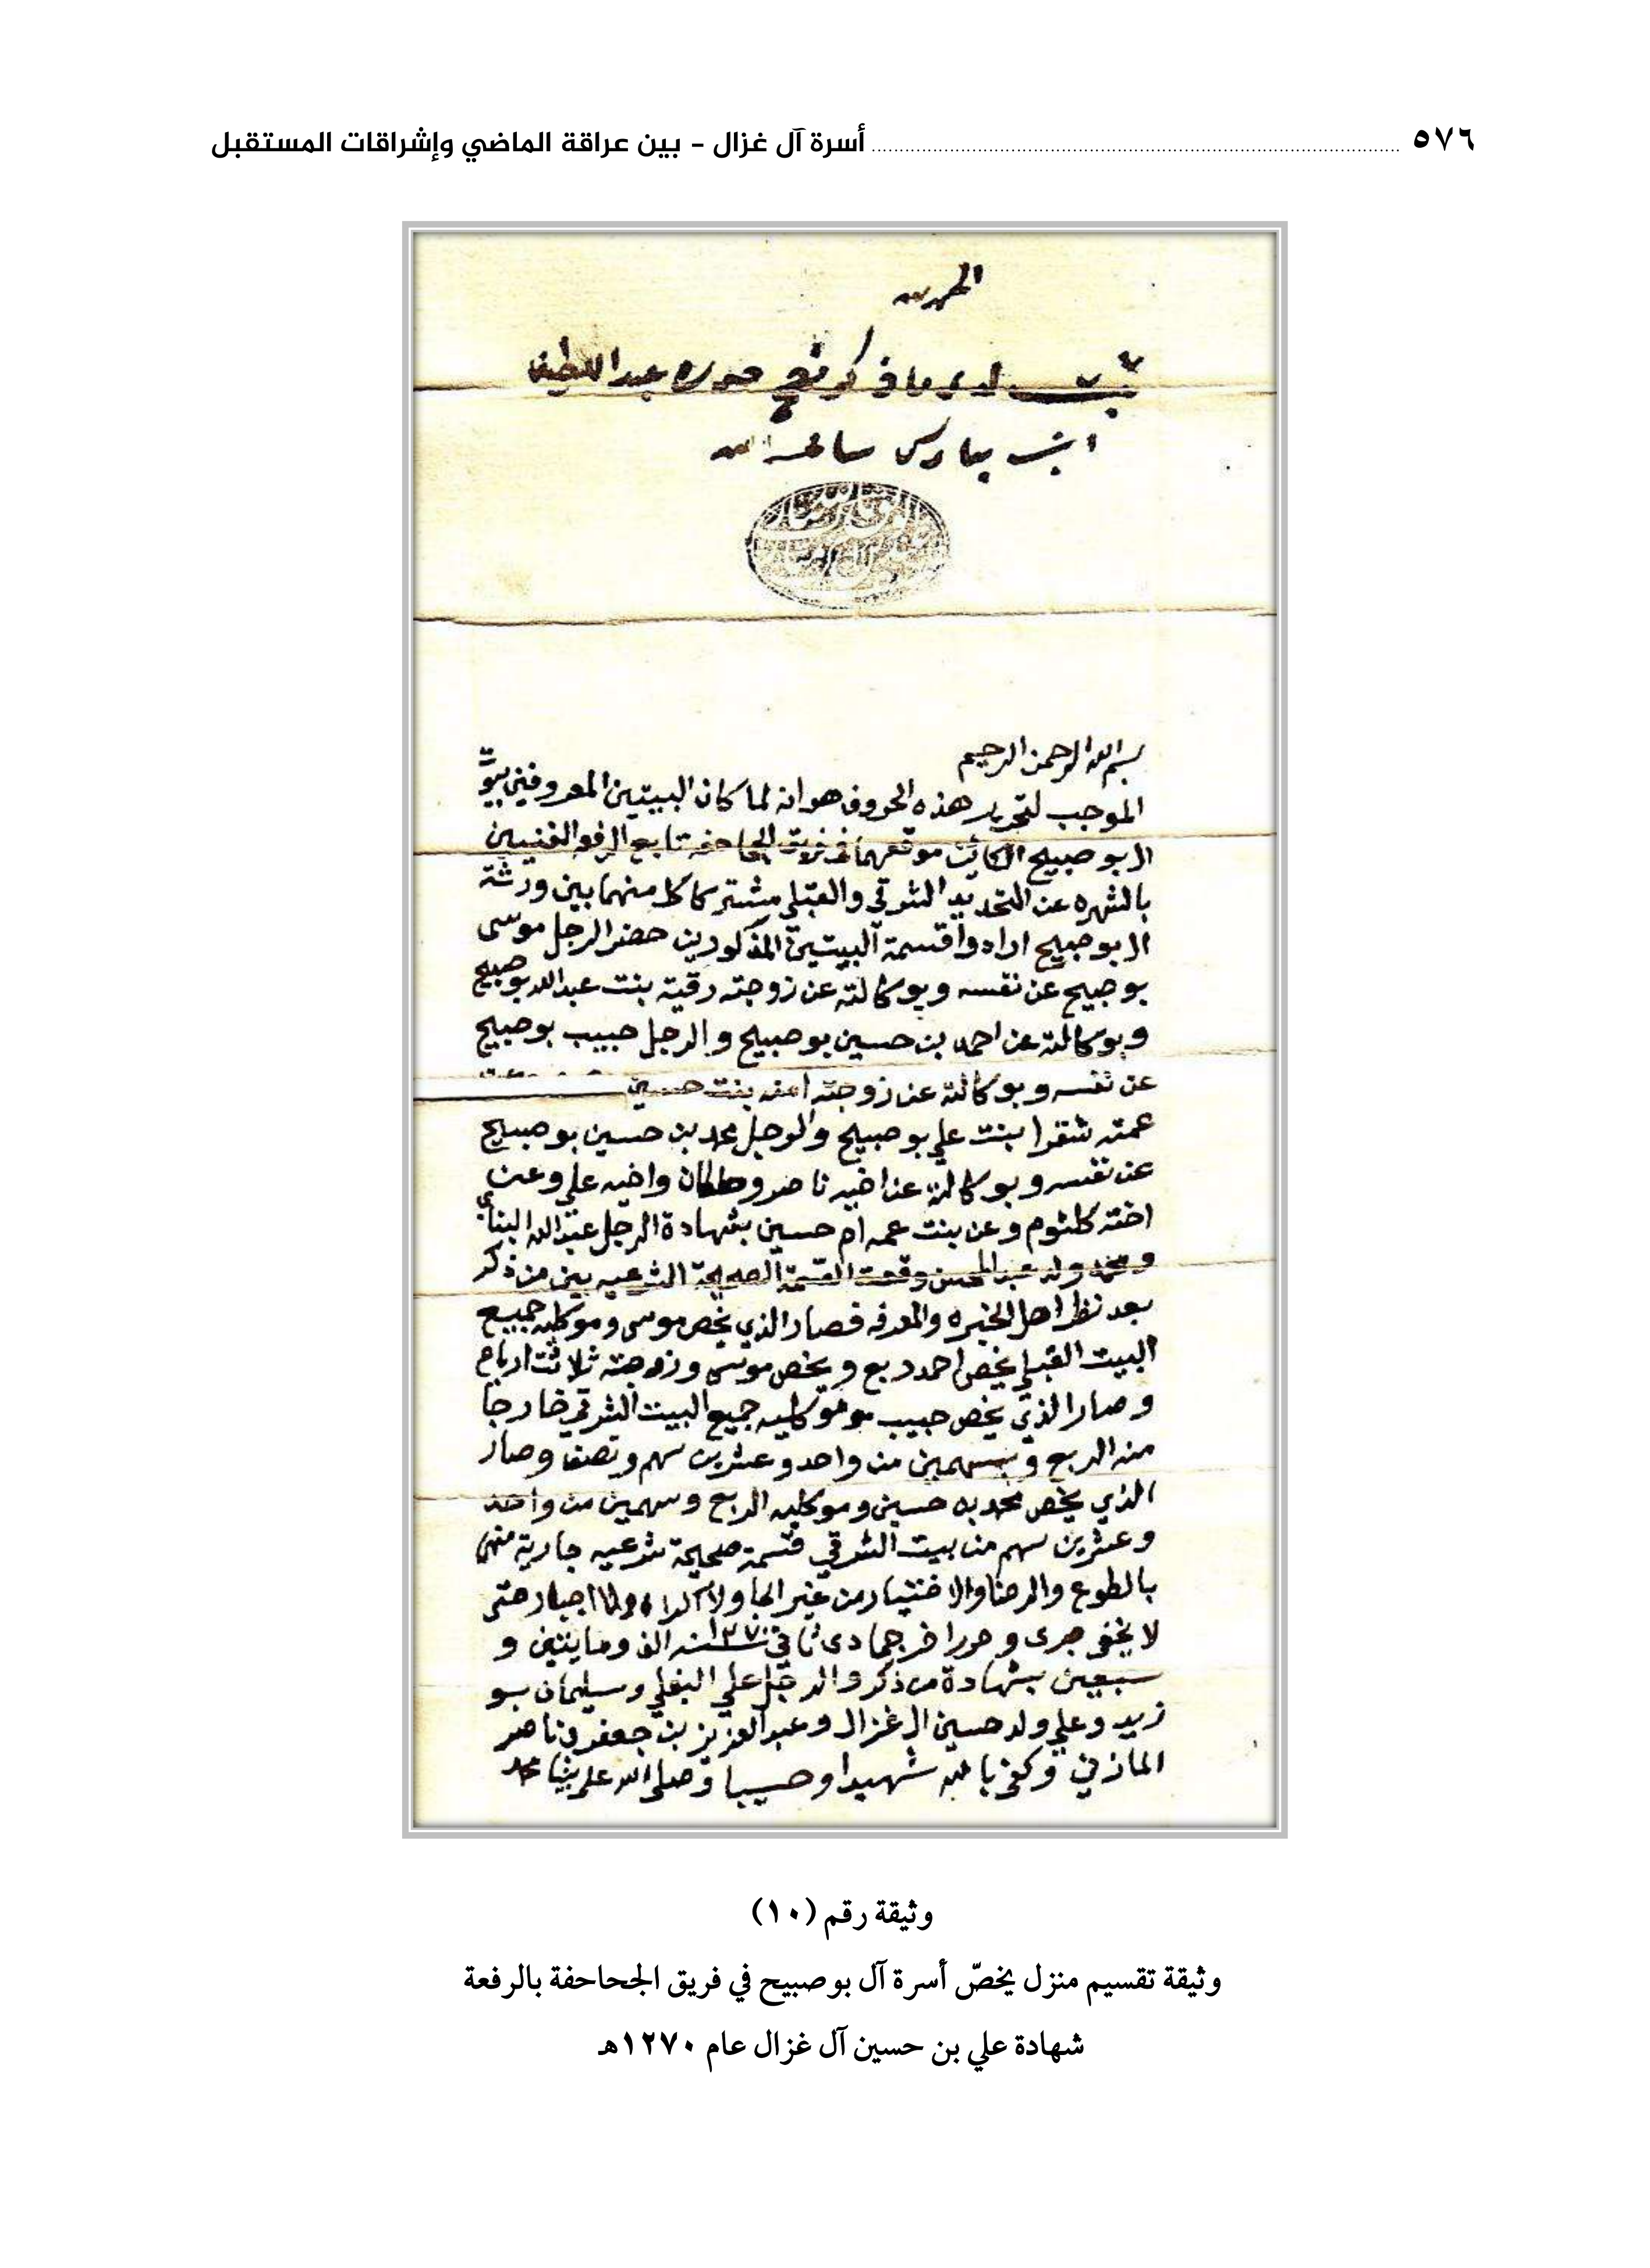 ٥٧٦ أسرة آل غزال - بين عراقة الماضي وإشراقات المستقبل
الحمد لله
ثبت لدي ما ذكر فيه حرره عبد اللطيف
ابن مبارك سامحه الله
بسم الله الرحمن الرحيم
الموجب لتحرير هذه الحروف هو انه لما كان البيتين المعروفين بيوت
ال بوصبيح الكائن موقعهما في فريق الجحاحفه تابع الرفعه الغنيين
بالشهره عن التحديد الشرقي والقبلي مشترك كلا منهما بين ورثة
ال بوصبيح ارادوا قسمة البيتين المذكورين حضر الرجل موسى
بوصبيح عن نفسه وبوكالته عن زوجته رقية بنت عبد الله بوصبيح
وبوكالته عن احمد بن حسين بوصبيح والرجل حبيب بوصبيح
عن نفسه وبوكالته عن زوجته امنه بنت حسين
عمته شقرا بنت علي بوصبيح والرجل محمد بن حسين بوصبيح
عن نفسه وبوكالته عن اخيه ناصر وسلطان واخيه علي وعن
اخته كلثوم وعن بنت عمه ام حسين بشهادة الرجل عبد الله البناي
ومحمد ولد عبد المحسن وقعت القسمة الصحيحة الشرعيه بين من ذكر
بعد نظر اهل الخبره والمعرفه فصار الذي يخص موسى وموكليه جميع
البيت القبلي يخص احمد ربع ويخص موسى وزوجته ثلاثت ارباع
وصار الذي يخص حبيب وموكليه جميع البيت الشرقي خارجا
منه الربع وسهمين من واحد وعشرين سهم ونصف وصار
الذي يخص محمد بن حسين وموكليه الربع وسهمين من واحد
وعشرين سهم من بيت الشرقي قسمة صحيحة شرعيه جارية منهم
بالطوع والرضا والاختيار من غير الجا ولا اكراه ولا اجبار حتى
لا يخفى جرى وحرر اخر جمادى ثاني سنة ١٢٧٠ الف ومايتين و
سبعين بشهادة من ذكر والرجل علي البغلي وسليمان بو
زيد وعلي ولد حسين ال غزال وعبد العزيز بن جعفر وناصر
المازني وكفى بالله شهيدا وحسيبا وصلى الله على نبينا محمد
وثيقة رقم (١٠)
وثيقة تقسيم منزل يخصّ أسرة آل بوصبيح في فريق الجحاحفة بالرفعة
شهادة علي بن حسين آل غزال عام ١٢٧٠هـ